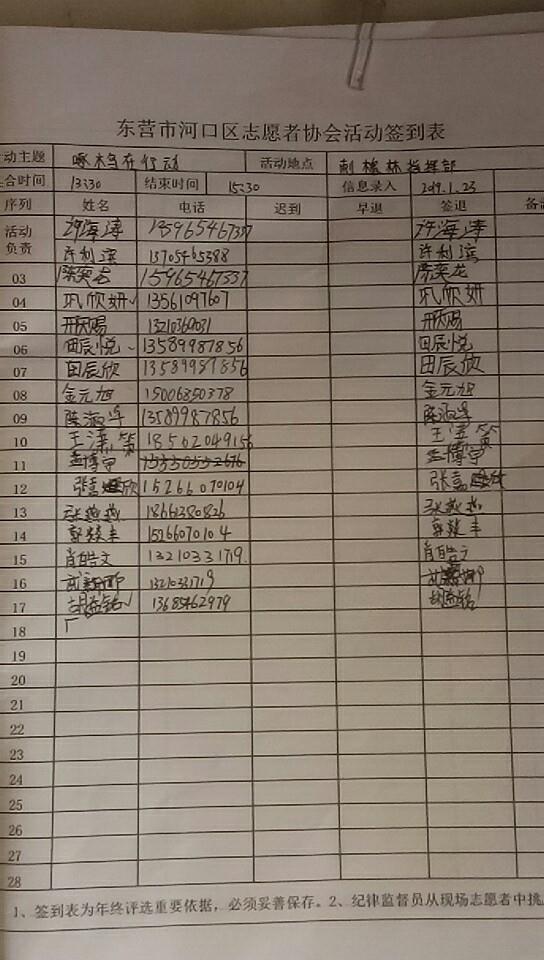 东营市河口区志愿者协会活动签到表
动主题 啄木鸟在行动 活动地点 刺槐林指挥部
合时间 13:30 结束时间 15:30 信息录入 2019.1.23
序列 姓名 电话 迟到 早退 签退 备
活动负责 许海涛 15965467337 许海涛
许利滨 13705465388 许利滨
03 陈奕龙 15965467337 陈奕龙
04 巩欣妍 13561097607 巩欣妍
05 13210369031
06 田辰悦 13589987856 田辰悦
07 田辰欣 13589987856 田辰欣
08 金元旭 15006850378 金元旭
09 陈淑华 13589987856 陈淑华
10 王 18562049156 王
11 孟博宇 孟博宇
12 张嘉欣 15266070104 张嘉欣
13 张燕燕 18661380826 张燕燕
14 丰 15266070104 丰
15 肖皓文 13210331719 肖皓文
16 1321031719
17 胡益铭 13685462979 胡益铭
18
19
20
21
22
23
24
25
26
27
28
1、签到表为年终评选重要依据，必须妥善保存。2、纪律监督员从现场志愿者中挑